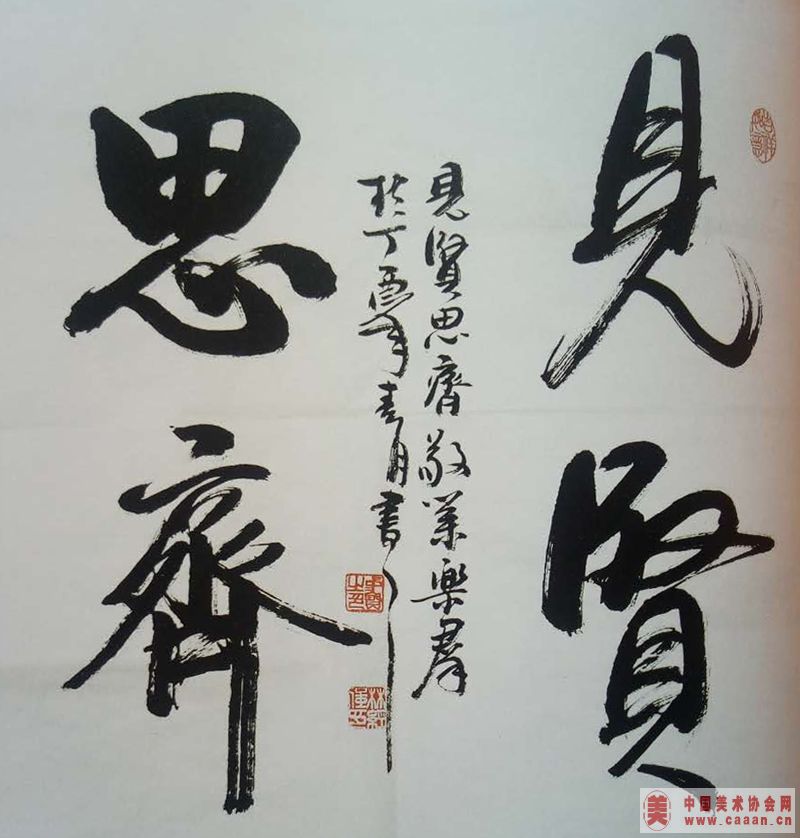 見賢
思齊
見賢思齊敬業樂群
於丁酉年春月書
中国美术协会网
www.caaan.cn